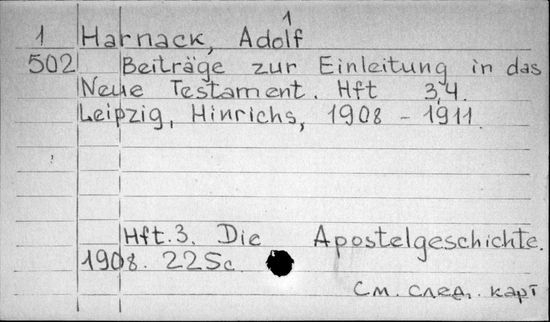 1
1 Harnack, Adolf
502 Beiträge zur Einleitung in das
Neue Testament. Hft 3,4.
Leipzig, Hinrichs, 1908 - 1911.
Hft. 3. Die Apostelgeschichte.
1908. 22Sc.
См. след. карт